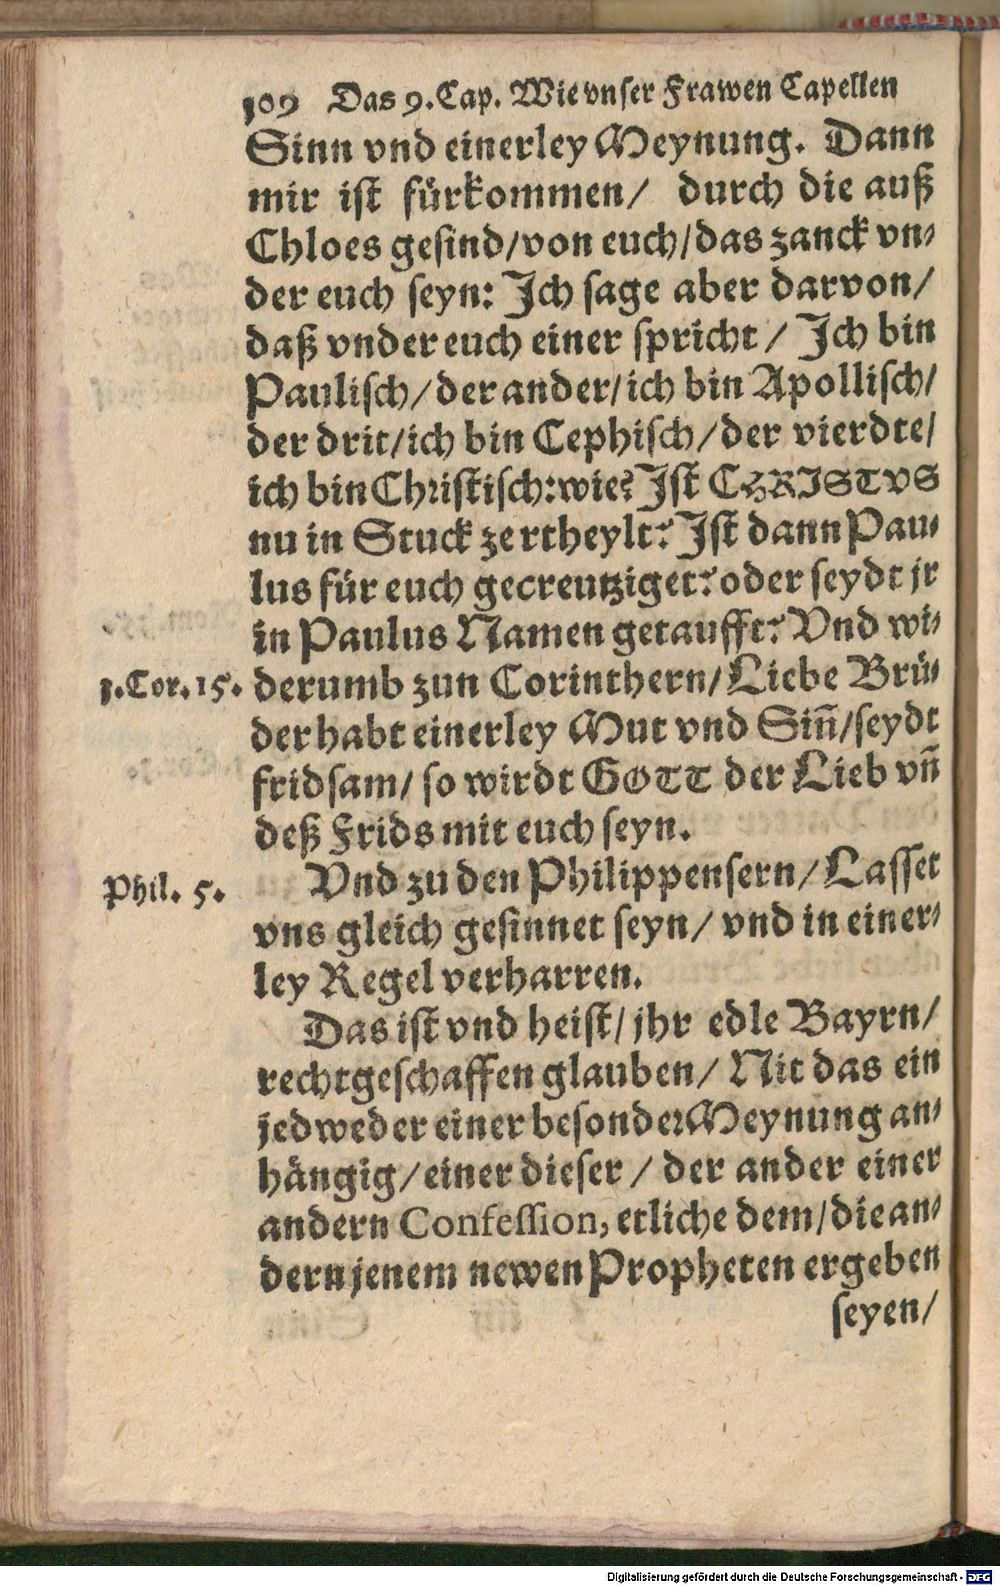 109 Das 9. Cap. Wie vnser Frawen Capellen
Sinn vnd einerley Meynung. Dann
mir ist fürkommen/ durch die auß
Chloes gesind/von euch/das zanck vn-
der euch seyn: Ich sage aber darvon/
daß vnder euch einer spricht/ Ich bin
Paulisch/der ander/ich bin Apollisch/
der drit/ich bin Cephisch/der vierdte/
ich bin Christisch: wie? Ist CHRISTVS
nu in Stuck zertheylt? Ist dann Pau-
lus für euch gecreutziget? oder seydt jr
in Paulus Namen getaufft? Vnd wi-
1. Cor. 15. derumb zun Corinthern/Liebe Brü-
der habt einerley Mut vnd Sin̄/seydt
fridsam/ so wirdt GOTT der Lieb vn̄
deß Frids mit euch seyn.
Phil. 5. Vnd zu den Philippensern/Lasset
vns gleich gesinnet seyn/ vnd in einer-
ley Regel verharren.
Das ist vnd heist/jhr edle Bayrn/
rechtgeschaffen glauben/ Nit das ein
jedweder einer besonder Meynung an-
hängig/einer dieser/ der ander einer
andern Confession, etliche dem/die an-
dern jenem newen Propheten ergeben
seyen/
Digitalisierung gefördert durch die Deutsche Forschungsgemeinschaft - DFG